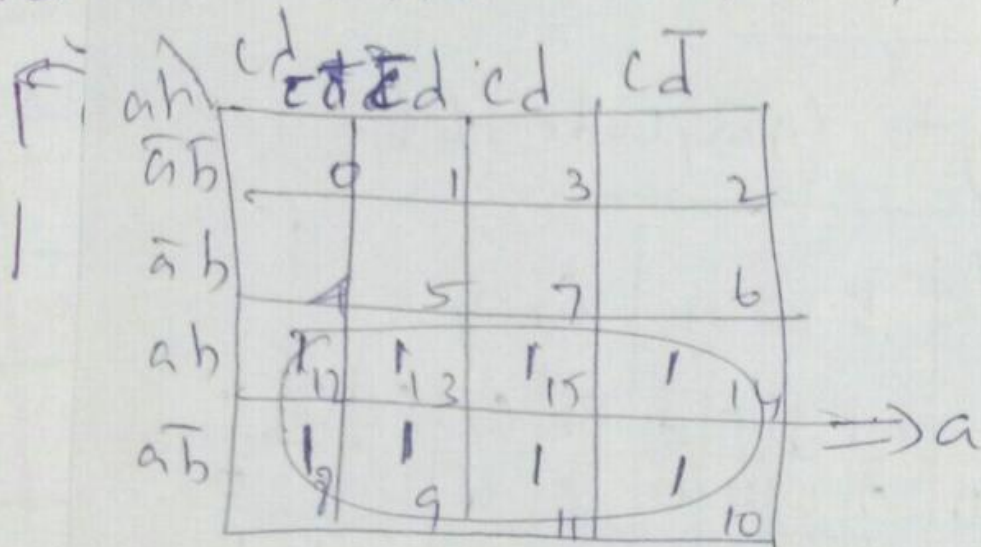 cd
ab c̅d̅ c̅d cd cd̅
a̅b̅ 0 1 3 2
a̅b 4 5 7 6
ab 1 12 1 13 1 15 1 14 ⇒ a
ab̅ 1 8 1 9 1 11 1 10